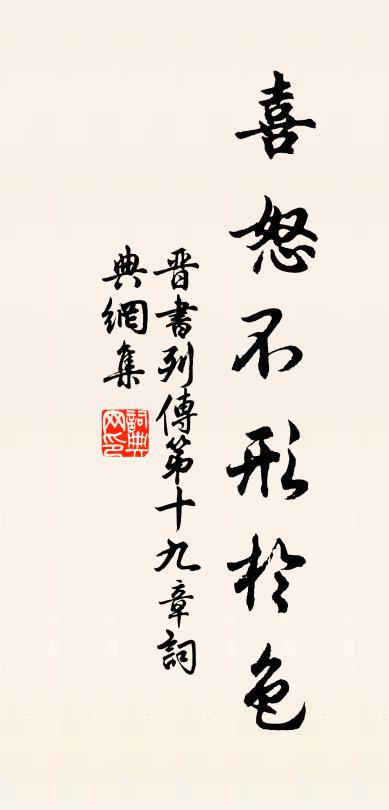 喜怒不形於色
晋書列傳第十九章詞
典網集
詞典
网印